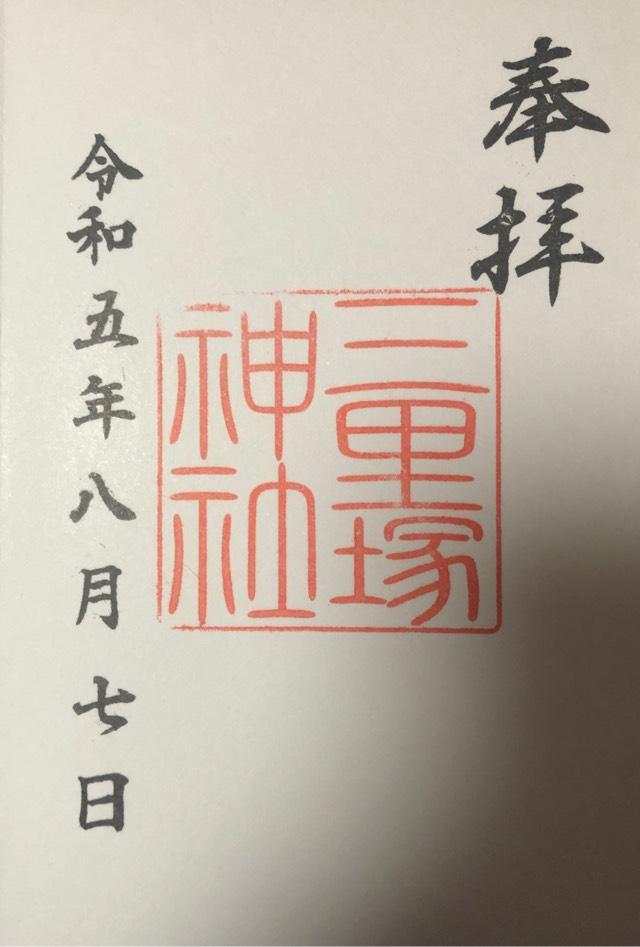 奉拝
三里塚
神社
令和五年八月七日